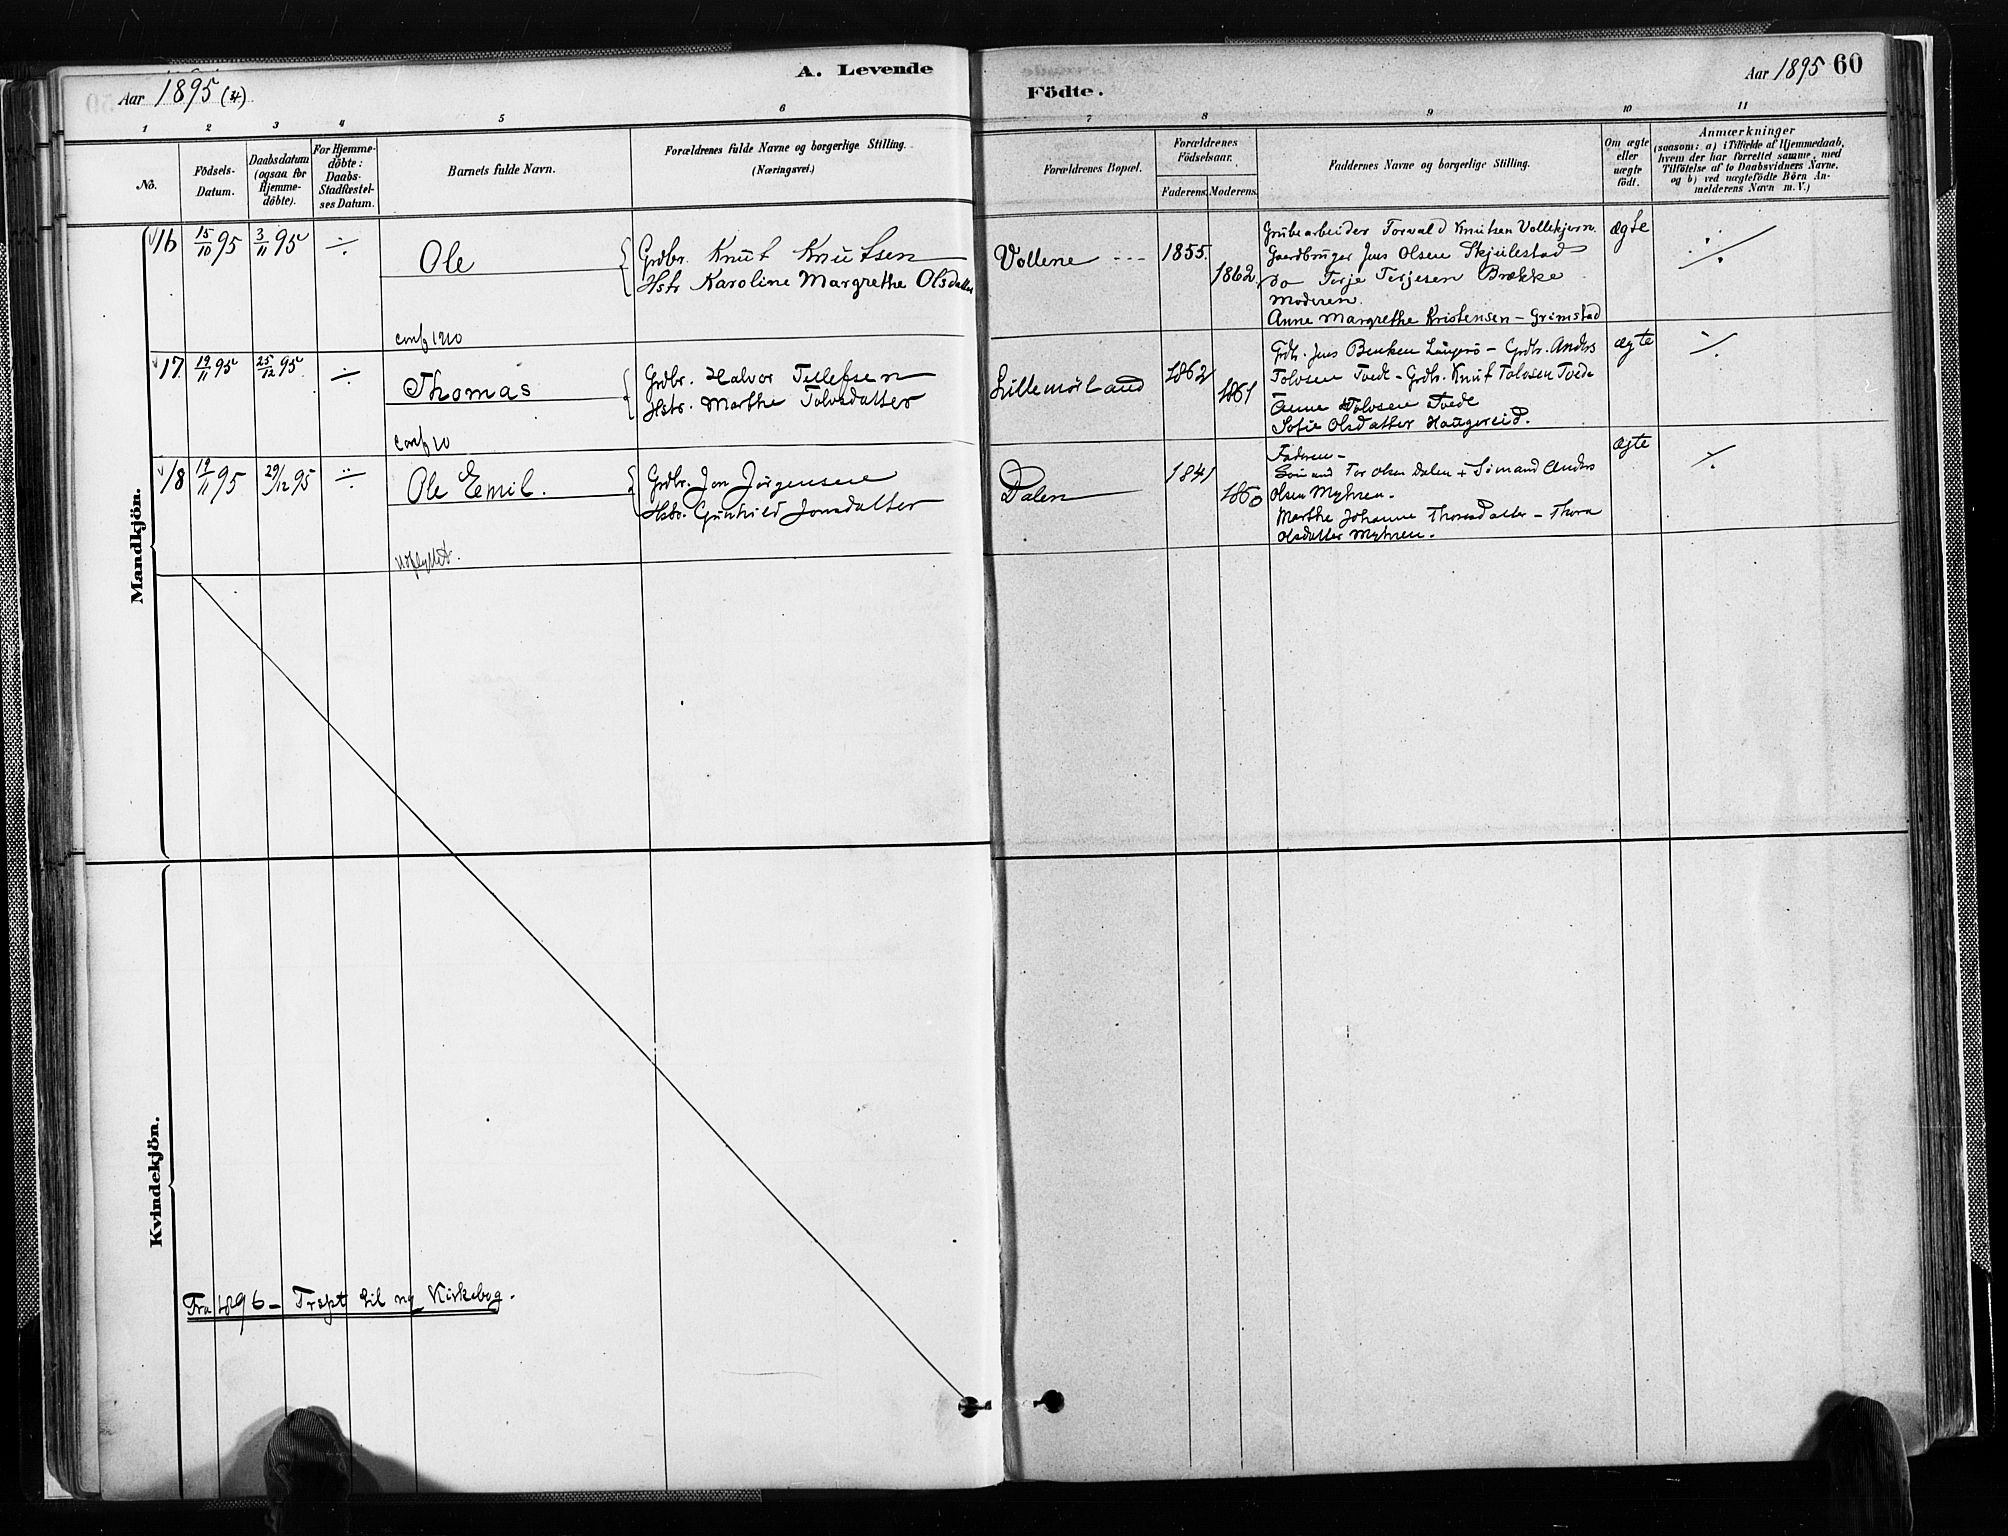 A. Levende
Aar 1895 (4)
1 2 3 4 5 6
No.
Födsels-
Datum.
Daabsdatum
(ogsaa for
Hjemme-
döbte).
For Hjemme-
döbte:
Daabs-
Stadfæstel-
ses Datum.
Barnets fulde Navn.
Forældrenes fulde Navne og borgerlige Stilling.
(Næringsvei.)
Mandkjön.
16 15/10 95 3/11 95 ÷ Ole
Grdbr. Knut Knutsen
Hstr Karoline Margrethe Olsdatter
conf 1910
17 19/11 95 25/12 95 ÷ Thomas
Grdbr. Halvor Tellefsen
Hstr. Marthe Tolvsdatter
conf 10
18 19/11 95 29/12 95 ÷ Ole Emil.
Grdbr. Jon Jörgensen
Hstr. Gunhild Jonsdatter
udflyttet.
Kvindekjön.
Fra 1896 - Trspt til ny Kirkebog.
Födte.
Aar 1895 60
7 8 9 10 11
Forældrenes Bopæl.
Forældrenes
Födselsaar.
Faderens. Moderens.
Faddernes Navne og borgerlige Stilling.
Om ægte
eller
uægte
födt.
Anmærkninger
(saasom: a) i Tilfælde af Hjemmedaab,
hvem der har forrettet samme, med
Tilföielse af to Daabsvidners Navne.
og b) ved uægtefödte Börn An-
melderens Navn m. V.)
Vollene 1855. 1862.
Grubearbeider Torvald Knutsen Vollekjern.
Gaardbruger Jens Olsen Skjulestad
do Terje Terjesen Brække
Moderen.
Anne Margrethe Kristensen - Grimstad
ægte ÷
Lillemörland 1862 1861
Grdbr. Jens Langerö - Grdbr. Anders
Tolvsen Tvede - Grdbr. Knut Tolvsen Tvede
Anne Tolvsen Tvede
Sofie Olsdatter Haugereid.
ægte ÷
Dalen 1841 1860
Faderen -
Sömand Tor Olsen Dalen + Sömand Anders
Olsen Myhren.
Marthe Johanne Thoresdatter - Thora
Olsdatter Myhren.
ægte ÷